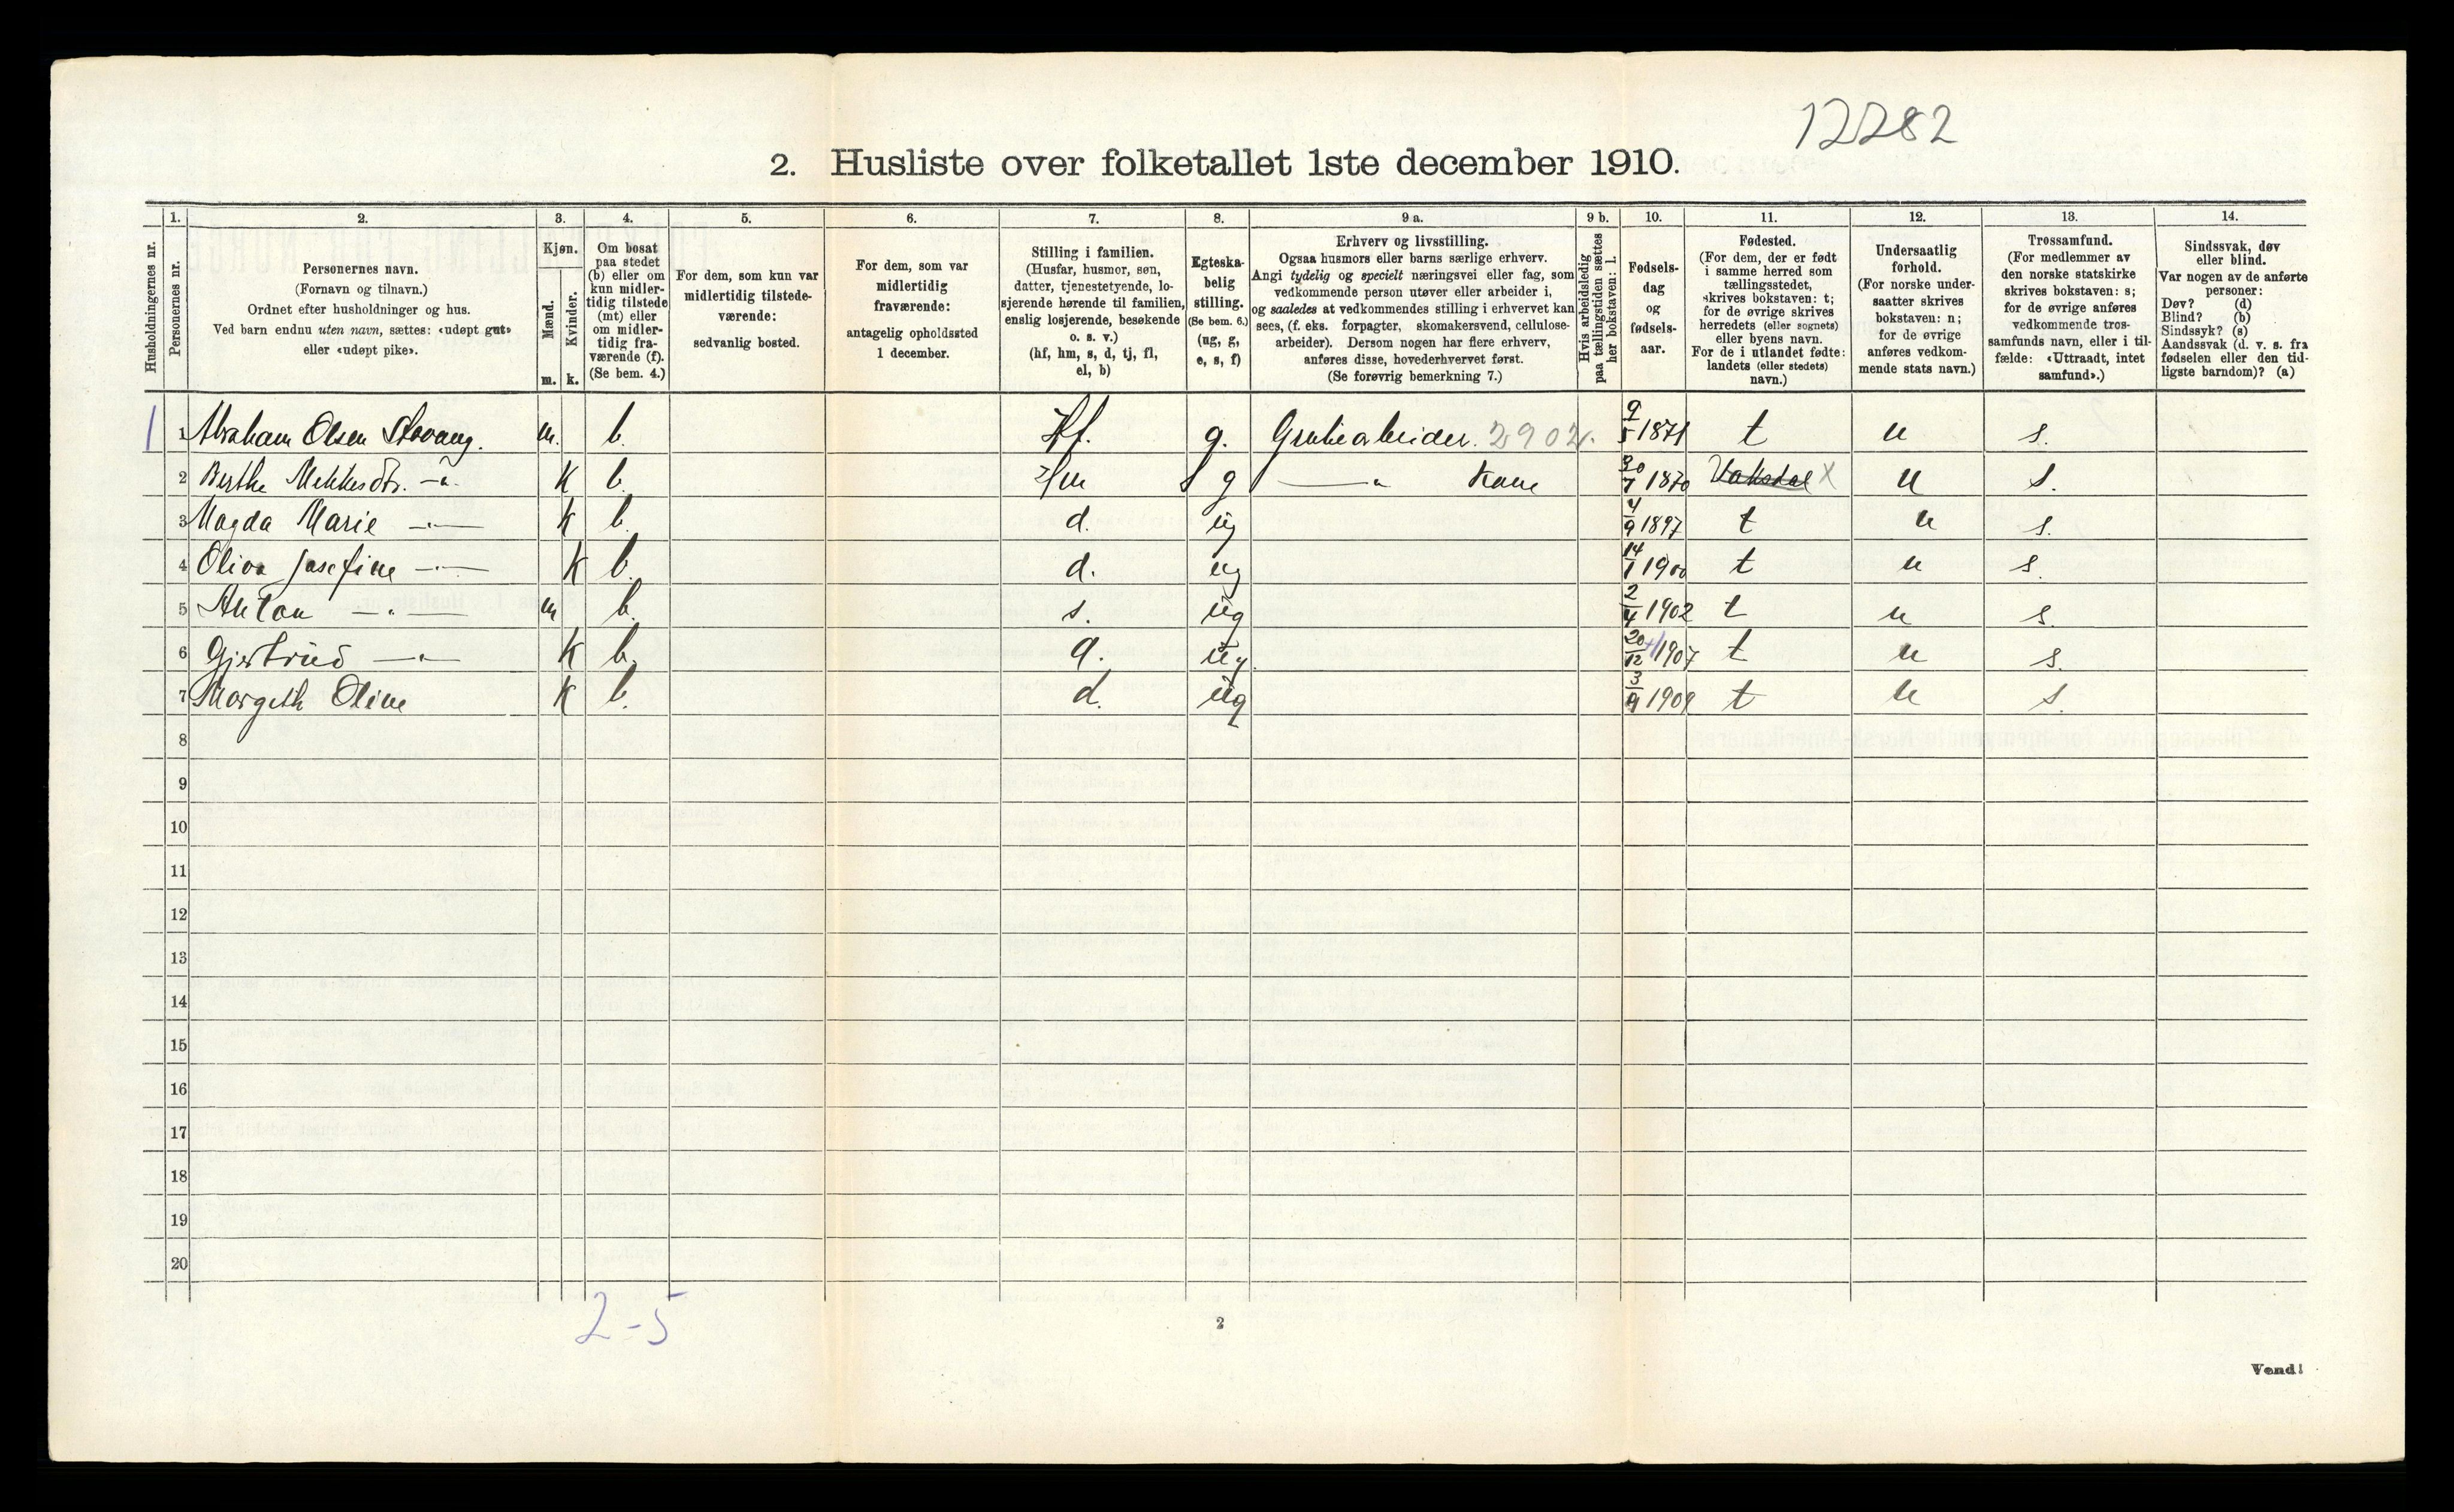 12282
2. Husliste over folketallet 1ste december 1910.
1. 2. 3. 4. 5. 6. 7. 8. 9 a. 9 b. 10. 11. 12. 13. 14.
Husholdningernes nr.
Personernes nr.
Personernes navn.
(Fornavn og tilnavn.)
Ordnet efter husholdninger og hus.
Ved barn endnu uten navn, sættes: «udøpt gut»
eller «udøpt pike».
Kjøn.
Mænd.
Kvinder.
m. k.
Om bosat
paa stedet
(b) eller om
kun midler-
tidig tilstede
(mt) eller
om midler-
tidig fra-
værende (f).
(Se bem. 4.)
For dem, som kun var
midlertidig tilstede-
værende:
sedvanlig bosted.
For dem, som var
midlertidig
fraværende:
antagelig opholdssted
1 december.
Stilling i familien.
(Husfar, husmor, søn,
datter, tjenestetyende, lo-
sjerende hørende til familien,
enslig losjerende, besøkende
o. s. v.)
(hf, hm, s, d, tj, fl,
el, b)
Egteska-
belig
stilling.
(Se bem. 6.)
(ug, g,
e, s, f)
Erhverv og livsstilling.
Ogsaa husmors eller barns særlige erhverv.
Angi tydelig og specielt næringsvei eller fag, som
vedkommende person utøver eller arbeider i,
og saaledes at vedkommendes stilling i erhvervet kan
sees, (f. eks. forpagter, skomakersvend, cellulose-
arbeider). Dersom nogen har flere erhverv,
anføres disse, hovederhvervet først.
(Se forøvrig bemerkning 7.)
Hvis arbeidsledig
paa tællingstiden sættes
her bokstaven: l.
Fødsels-
dag
og
fødsels-
aar.
Fødested.
(For dem, der er født
i samme herred som
tællingsstedet,
skrives bokstaven: t;
for de øvrige skrives
herredets (eller sognets)
eller byens navn.
For de i utlandet fødte:
landets (eller stedets)
navn.)
Undersaatlig
forhold.
(For norske under-
saatter skrives
bokstaven: n;
for de øvrige
anføres vedkom-
mende stats navn.)
Trossamfund.
(For medlemmer av
den norske statskirke
skrives bokstaven: s;
for de øvrige anføres
vedkommende tros-
samfunds navn, eller i til-
fælde: «Uttraadt, intet
samfund».)
Sindssvak, døv
eller blind.
Var nogen av de anførte
personer:
Døv? (d)
Blind? (b)
Sindssyk? (s)
Aandssvak (d. v. s. fra
fødselen eller den tid-
ligste barndom)? (a)
1 1 Abraham Olsen Stavang. m. b. Hf. g. Grubearbeider. 2902. 9/5 1871 t n s.
2 Berthe Mekkesdtr. —"— K b. Hm g —"— Kone 30/7 1870 Vaksdal X n s.
3 Magda Marie —"— K b. d. ug 4/9 1897 t n s.
4 Oliva Josefine —"— K b. d. ug 14/1 1900 t n s.
5 Anton —"— m b. s. ug 2/4 1902 t n s.
6 Gjertrud —"— K b. d. ug. 20/12 1907 t n s.
7 Margith Oline K b. d. ug 3/9 1909 t n s.
8
9
10
11
12
13
14
15
16
17
18
19
20
2-5
2
Vend!